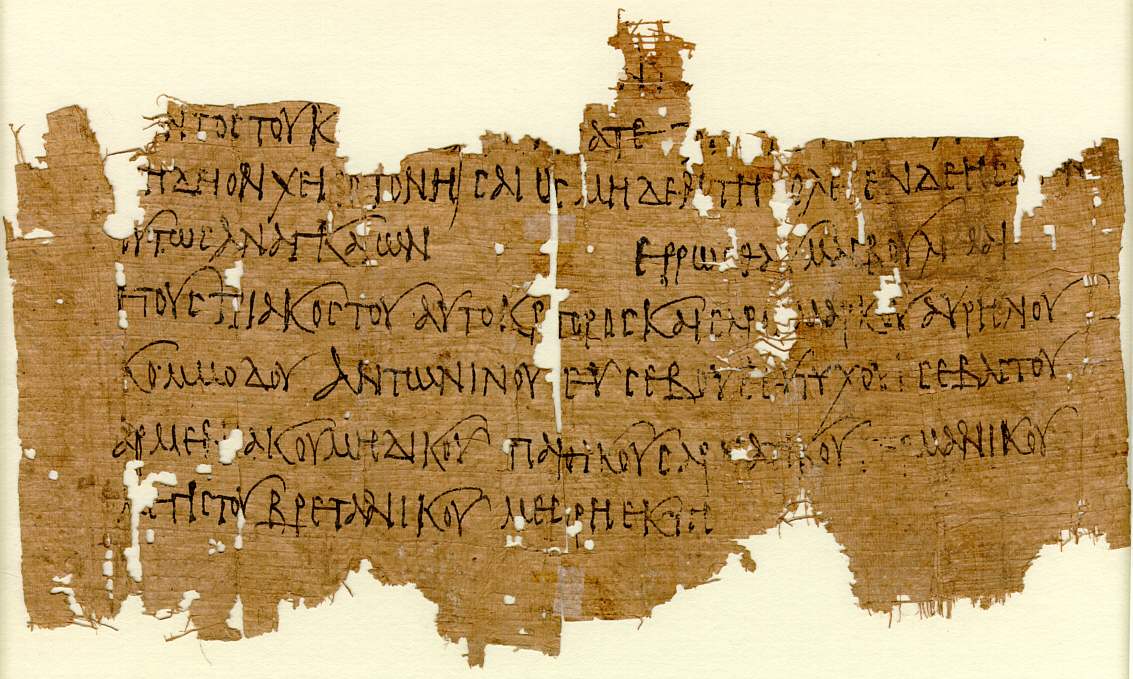 ντος του κ ατε
ηδειον χειροτονησαι ως μηδεν τη πολει ενδεησαι
ουτως αναγκαιων ερρωσθαι υμας βουλομαι
ετους τριακοστου αυτοκρατορος καισαρος μαρκου αυρηλιου
κομμοδου αντωνινου ευσεβους ευτυχους σεβαστου
αρμενιακου μηδικου παρθικου σαρματικου γερμανικου
μεγιστου βρετανικου μεσορη εκτη